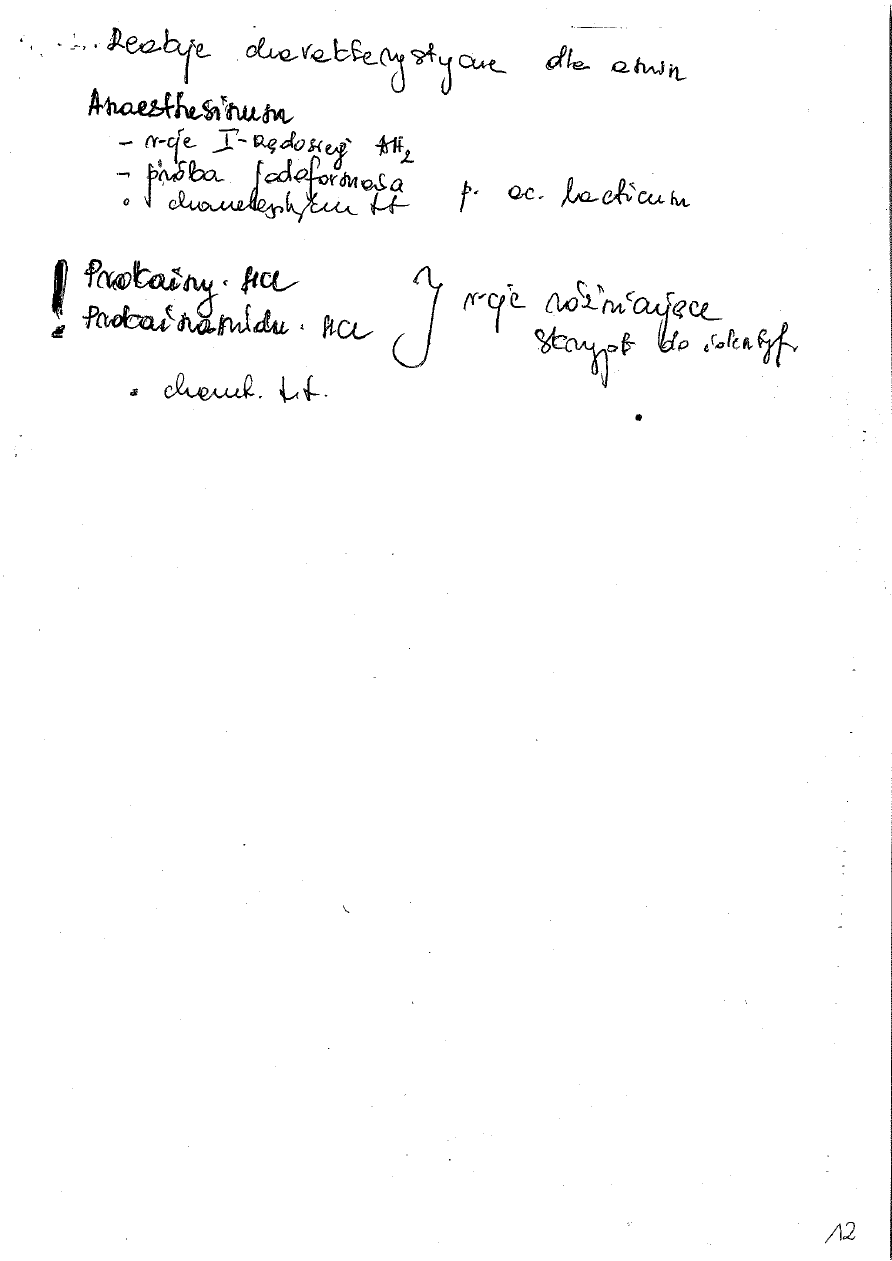 Reakcje charakterystyczne dla amin
Anaesthesinum
- r-cje I-rzędowej NH2
- próba jodoformowa
• charakterystyczna tt p. ac. lacticum
! Prokainy · HCl
Prokainamidu · HCl } r-cje różnicujące
skrypt do identyf.
• charakt. t.t.
12